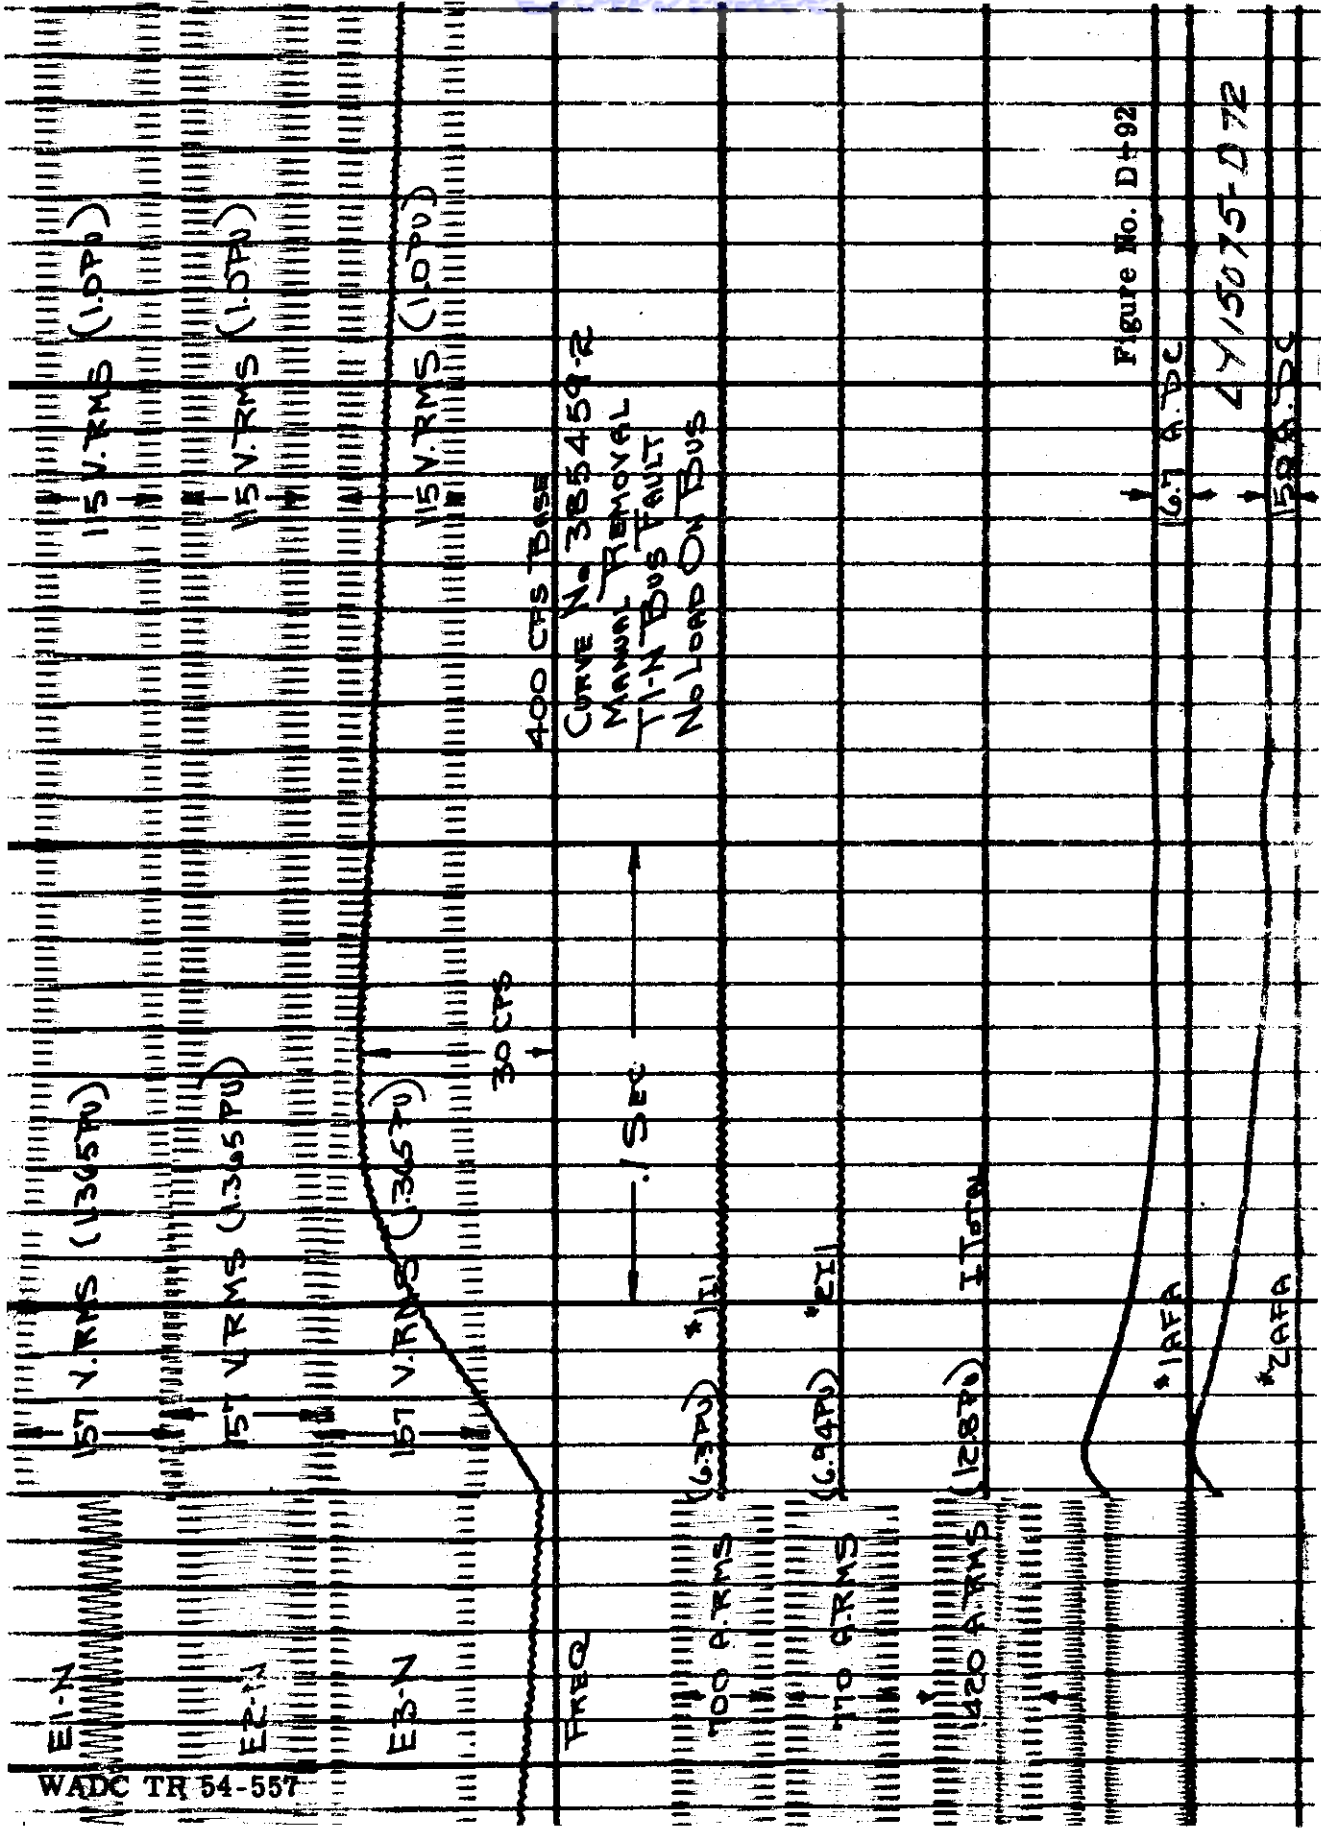 E1-N
157 V. RMS (1.365PU)
115 V. RMS (1.0PU)
E2-N
157 V. RMS (1.365PU)
115 V. RMS (1.0PU)
E3-N
157 V. RMS (1.365PU)
115 V. RMS (1.0PU)
30 CPS
400 CPS BASE
FREQ
CURVE No 385459-R
MANUAL REMOVAL
T1-N BUS FAULT
No LOAD ON BUS
.1 SEC
700 A.RMS (6.3PU) #1I1
770 A.RMS (6.94PU) #2I1
1420 A.RMS (12.8PU) I TOTAL
Figure No. D1-92
#1AFA
16.7 A. DC
LY15075-D72
#2AFA
15.8 A. DC
WADC TR 54-557